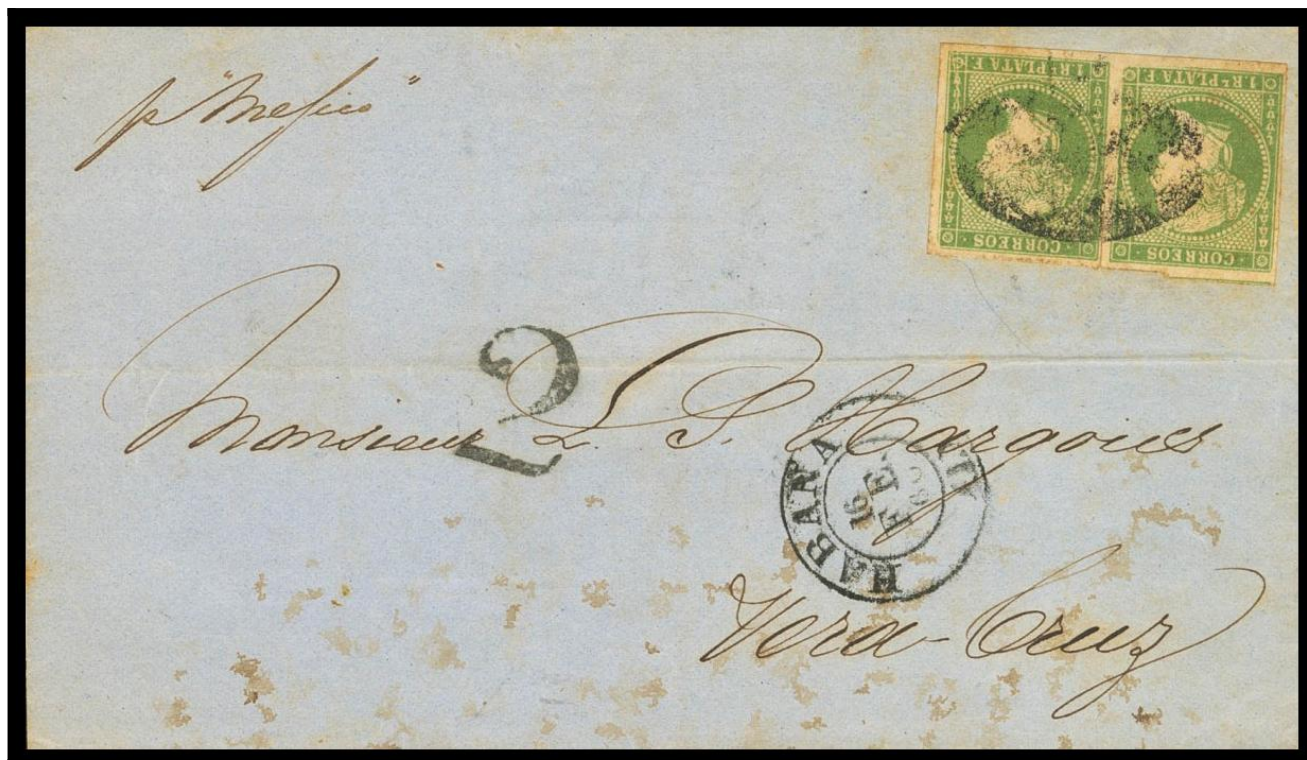 p "Mejico"
1 RL. PLATA F.
CORREOS
1 RL. PLATA F.
CORREOS
2
Monsieur L. S. Hargous
HABANA
16
FE
Vera-Cruz